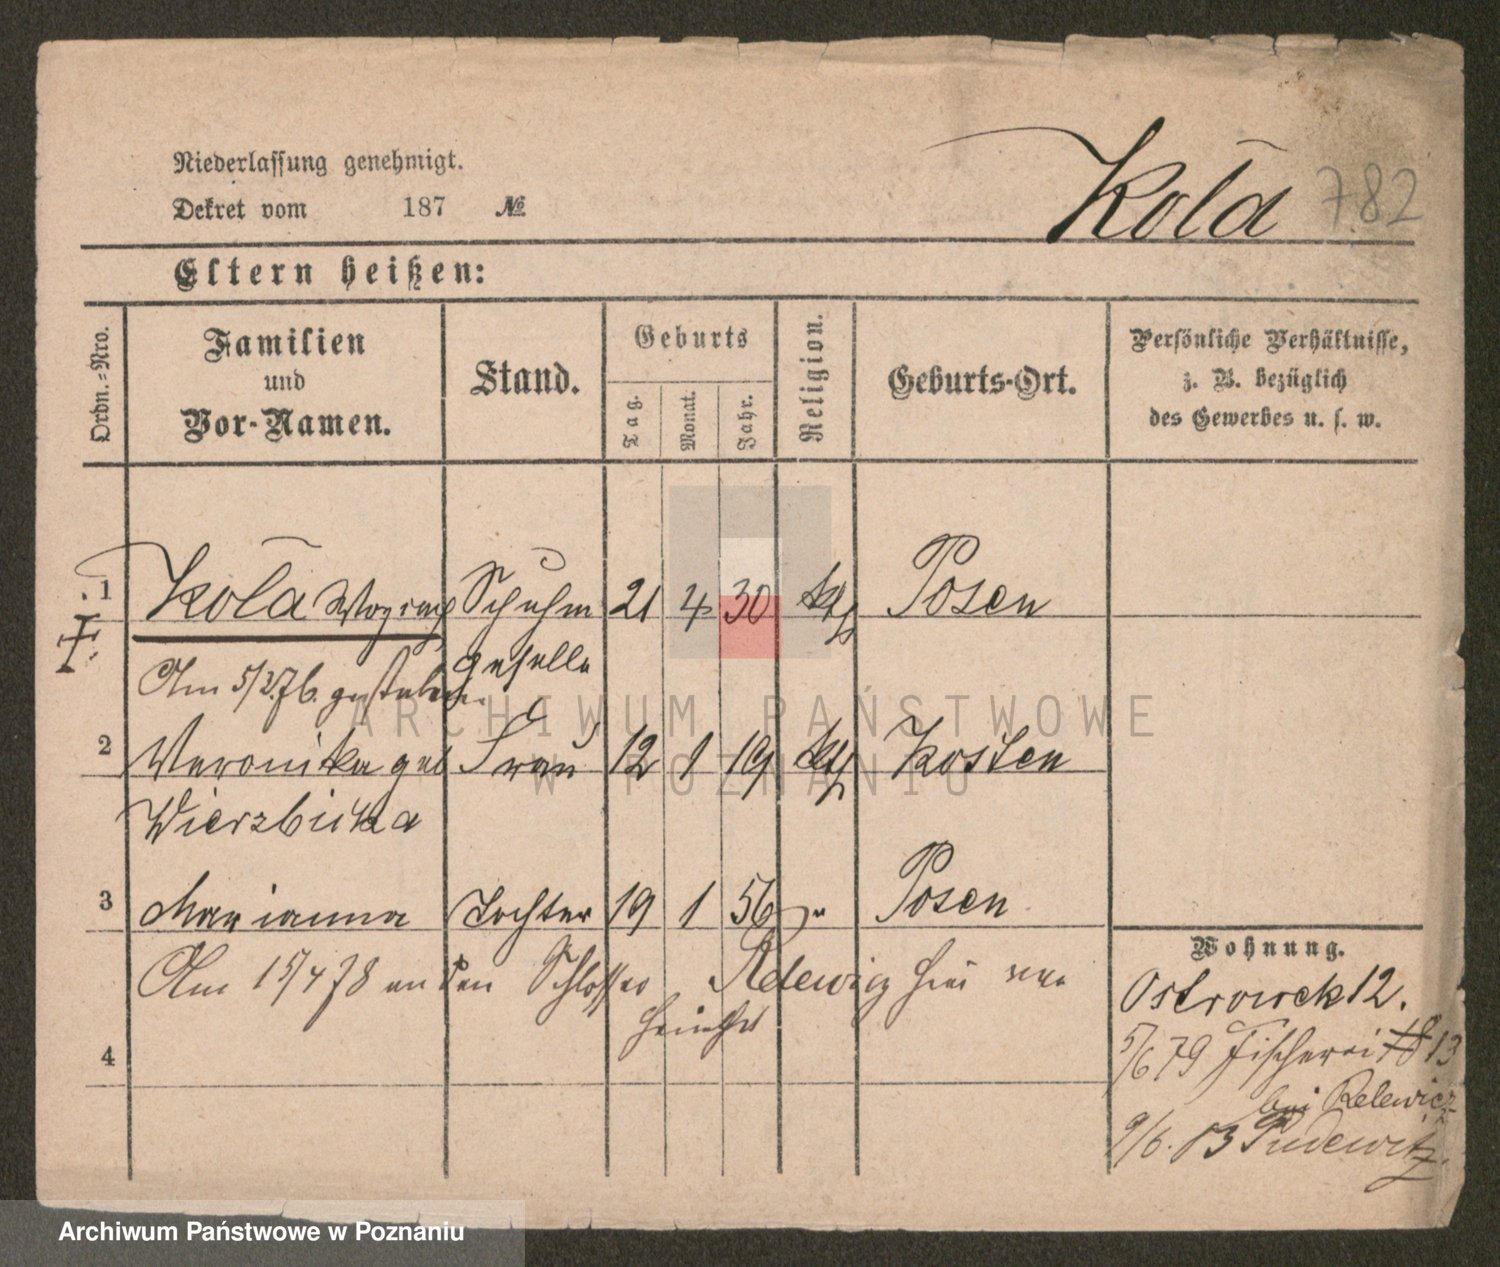 Niederlassung genehmigt.
Dekret vom 187 №
Kola 782
Eltern heißen:
Ordn.=Nro.
Familien
und
Vor-Namen.
Stand.
Geburts
Tag.
Monat.
Jahr.
Religion.
Geburts-Ort.
Persönliche Verhältnisse,
z. B. bezüglich
des Gewerbes u. s. w.
1 Kola Woyciech Schuhm 21 4 30 kth Posen
geselle
Am 5/3.76. gestorben
2 Veronika geb Frau 12 1 19 kth Kosten
Wierzbicka
3 Marianna Tochter 19 1 56 " Posen
Am 15/4 78 an den Schlosser Relewicz hier ver
heirathet
4
Wohnung.
Ostrowek 12.
5/6 79 Fischerei 18 13
bei Relewicz
9/6. 83 Pudewitz.
ARCHIWUM PAŃSTWOWE
W POZNANIU
Archiwum Państwowe w Poznaniu